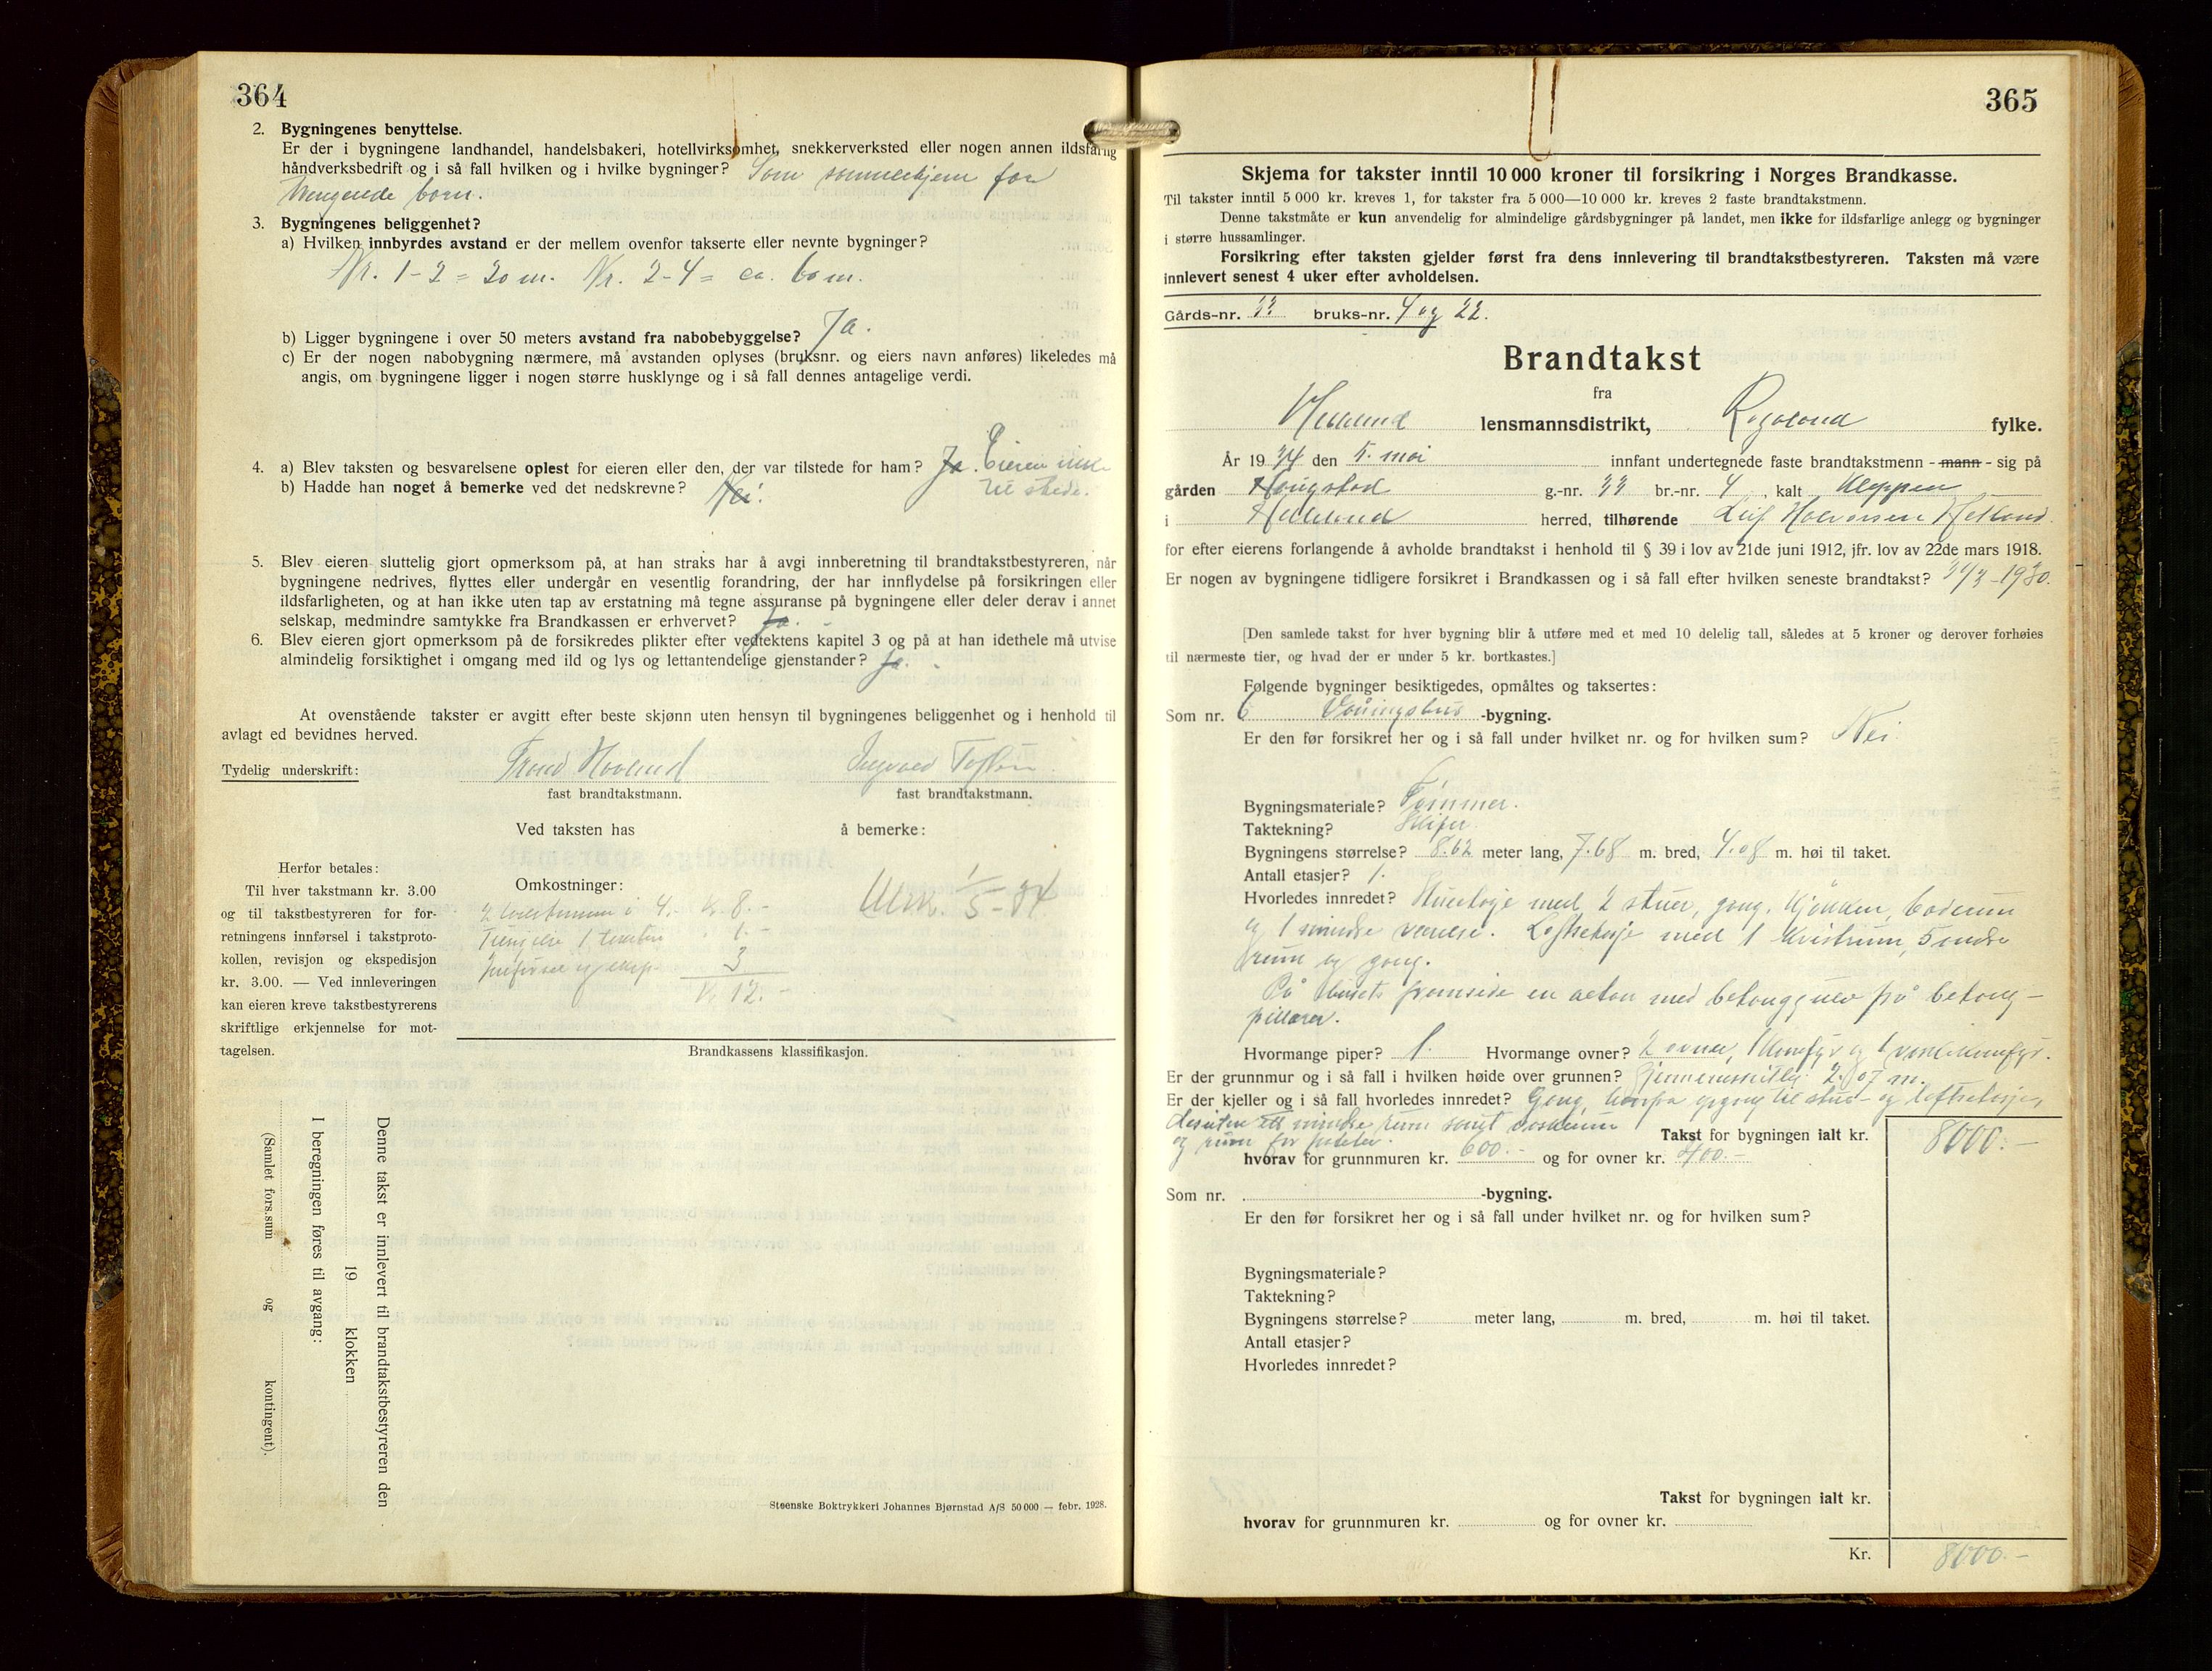 364
2. Bygningenes benyttelse.
Er der i bygningene landhandel, handelsbakeri, hotellvirksomhet, snekkerverksted eller nogen annen ildsfarlig
håndverksbedrift og i så fall hvilken og i hvilke bygninger? Som sommerhjem for
trengende born.
3. Bygningenes beliggenhet?
a) Hvilken innbyrdes avstand er der mellem ovenfor takserte eller nevnte bygninger?
Nr. 1-2 = 20 m. Nr. 2-4 = ca. 60 m.
b) Ligger bygningene i over 50 meters avstand fra nabobebyggelse? Ja.
c) Er der nogen nabobygning nærmere, må avstanden oplyses (bruksnr. og eiers navn anføres) likeledes må
angis, om bygningene ligger i nogen større husklynge og i så fall dennes antagelige verdi.
4. a) Blev taksten og besvarelsene oplest for eieren eller den, der var tilstede for ham? Ja. Eieren ikke
til stede.
b) Hadde han noget å bemerke ved det nedskrevne? Nei.
5. Blev eieren sluttelig gjort opmerksom på, at han straks har å avgi innberetning til brandtakstbestyreren, når
bygningene nedrives, flyttes eller undergår en vesentlig forandring, der har innflydelse på forsikringen eller
ildsfarligheten, og at han ikke uten tap av erstatning må tegne assuranse på bygningene eller deler derav i annet
selskap, medmindre samtykke fra Brandkassen er erhvervet? Ja.
6. Blev eieren gjort opmerksom på de forsikredes plikter efter vedtektens kapitel 3 og på at han idethele må utvise
almindelig forsiktighet i omgang med ild og lys og lettantendelige gjenstander? Ja.
At ovenstående takster er avgitt efter beste skjønn uten hensyn til bygningenes beliggenhet og i henhold til
avlagt ed bevidnes herved.
Tydelig underskrift: Trond Hovland
fast brandtakstmann. fast brandtakstmann.
Ved taksten has å bemerke:
Herfor betales:
Til hver takstmann kr. 3.00
og til takstbestyreren for for-
retningens innførsel i takstproto-
kollen, revisjon og ekspedisjon
kr. 3.00. — Ved innleveringen
kan eieren kreve takstbestyrerens
skriftlige erkjennelse for mot-
tagelsen.
Omkostninger:
2 takstmenn à 4.- Kr. 8.-
1.-
Innførsel og eksp. 3
Kr. 12.-
1/5-34
Brandkassens klassifikasjon.
Denne takst er innlevert til brandtakstbestyreren den
19 klokken
I beregningen føres til avgang:
(Samlet fors.sum og kontingent).
Steenske Boktrykkeri Johannes Bjørnstad A/S 50 000 — febr. 1928.
365
Skjema for takster inntil 10 000 kroner til forsikring i Norges Brandkasse.
Til takster inntil 5 000 kr. kreves 1, for takster fra 5 000—10 000 kr. kreves 2 faste brandtakstmenn.
Denne takstmåte er kun anvendelig for almindelige gårdsbygninger på landet, men ikke for ildsfarlige anlegg og bygninger
i større hussamlinger.
Forsikring efter taksten gjelder først fra dens innlevering til brandtakstbestyreren. Taksten må være
innlevert senest 4 uker efter avholdelsen.
Gårds-nr. 33 bruks-nr. 4 og 22.
Brandtakst
fra
Helleland lensmannsdistrikt, Rogaland fylke.
År 1934 den 5. mai innfant undertegnede faste brandtakstmenn - mann - sig på
gården Haugstad g.-nr. 33 br.-nr. 4, kalt Kleppen
i Helleland herred, tilhørende Leif Halvorsen Hetland.
for efter eierens forlangende å avholde brandtakst i henhold til § 39 i lov av 21de juni 1912, jfr. lov av 22de mars 1918.
Er nogen av bygningene tidligere forsikret i Brandkassen og i så fall efter hvilken seneste brandtakst? 31/3-1930.
[Den samlede takst for hver bygning blir å utføre med et med 10 delelig tall, således at 5 kroner og derover forhøies
til nærmeste tier, og hvad der er under 5 kr. bortkastes.]
Følgende bygninger besiktigedes, opmåltes og taksertes:
Som nr. 6 Våningshus -bygning.
Er den før forsikret her og i så fall under hvilket nr. og for hvilken sum? Nei.
Bygningsmateriale? Tømmer.
Taktekning? Skifer.
Bygningens størrelse? 8.62 meter lang, 7.68 m. bred, 4.08 m. høi til taket.
Antall etasjer? 1.
Hvorledes innredet? med 2 stuer, gang, kjøkken, baderum
og 1 mindre værelse. Loftsetasje med 1 kvistrum, 5 mdre
rum og gang.
På husets framside en altan med betonggulv på betong-
pillarer.
Hvormange piper? 1. Hvormange ovner? 2 ovner, 1 komfyr og 1 vaskekomfyr.
Er der grunnmur og i så fall i hvilken høide over grunnen? Gjennemsnitlig 2.07 m.
Er der kjeller og i så fall hvorledes innredet? Gang, hvorfra opgang til stue- og loftsetasje,
desuten ett mindre rum samt vaskerum
og rum for poteter. Takst for bygningen ialt kr. 8000.-
hvorav for grunnmuren kr. 600.- og for ovner kr. 400.-
Som nr. -bygning.
Er den før forsikret her og i så fall under hvilket nr. og for hvilken sum?
Bygningsmateriale?
Taktekning?
Bygningens størrelse? meter lang, m. bred, m. høi til taket.
Antall etasjer?
Hvorledes innredet?
Takst for bygningen ialt kr.
hvorav for grunnmuren kr. og for ovner kr.
Kr. 8000.-